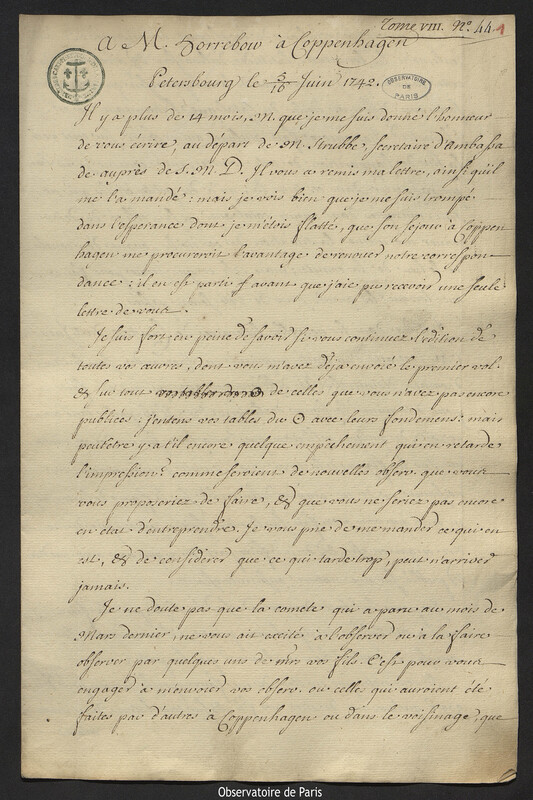 Tome VIII. N.° 44 1
A M. Horrebow à Coppenhagen
Petersbourg le 5/16 Juin 1742.
OBSERVATOIRE
DE
PARIS
Il y a plus de 14 mois, M. que je me suis donné l'honneur
de vous écrire, au départ de M. Strubbe, secretaire d'Ambassa
de auprès de S. M. D. Il vous a remis ma lettre, ainsi qu'il
me l'a mandé : mais je vois bien que je me suis trompé
dans l'esperance dont je m'étois flatté, que son sejour à Coppen
hagen me procureroit l'avantage de renouer notre correspon
dance : il en est parti avant que j'aie pu recevoir une seule
lettre de vous.
Je suis fort en peine de savoir si vous continuez l'édition de
toutes vos œuvres, dont vous m'avez déja envoié le premier vol.
& sur tout de celles que vous n'avez pas encore
publiées : j'entens vos tables du ☉ avec leurs fondemens : mais
peutetre y a t'il encore quelque empêchement qui en retarde
l'impression? comme seroient de nouvelles observ. que vous
vous proposeriez de faire, & que vous ne seriez pas encore
en état d'entreprendre. Je vous prie de me mander ce qui en
est, & de considérer que ce qui tarde trop, peut n'arriver
jamais.
Je ne doute pas que la comete qui a paru au mois de
Mars dernier, ne vous ait excité à l'observer ou à la faire
observer par quelques uns de mrs vos fils. C'est pour vous
engager à m'envoier vos observ. ou celles qui auroient été
faites par d'autres à Coppenhagen ou dans le voisinage, que
Observatoire de Paris